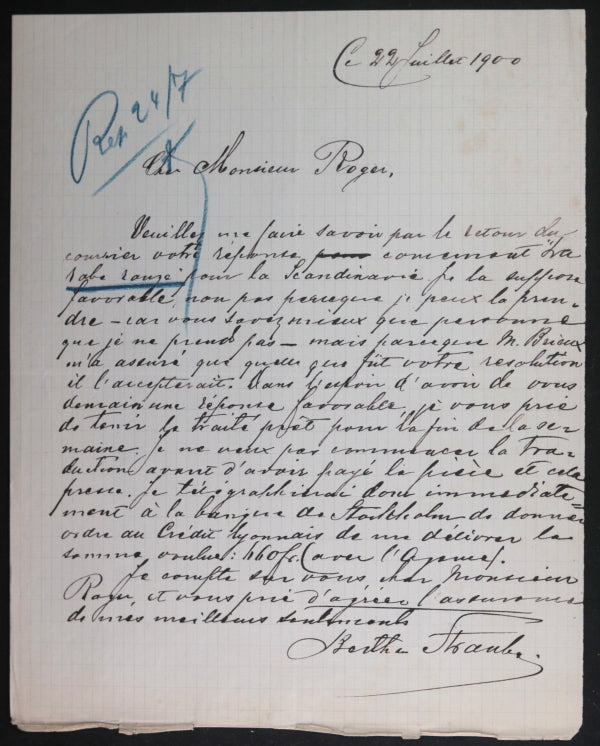 Ce 22 Juillet 1900
Rep 24/7
Cher Monsieur Roger,
Veuillez me faire savoir par le retour du
courrier votre réponse pour concernant la
robe rouge pour la Scandinavie. Je la suppose
favorable, non pas parceque je peux la pren-
dre – car vous savez mieux que personne
que je ne prends pas – mais parceque M. Brieux
m'a assuré que quelle que fût votre résolution
il l'accepterait. Dans l'espoir d'avoir de vous
demain une réponse favorable, je vous prie
de tenir le traité prêt pour la fin de la se-
maine. Je ne veux pas commencer la tra-
duction avant d'avoir payé la pièce et cela
presse. Je télégraphierai donc immédiate-
ment à la banque de Stockholm de donner
ordre au Crédit Lyonnais de me délivrer la
somme voulue: 660 fr. (avec l'Agence).
Je compte sur vous, cher Monsieur
Roger, et vous prie d'agréer l'assurance
de mes meilleurs sentiments
Berthe